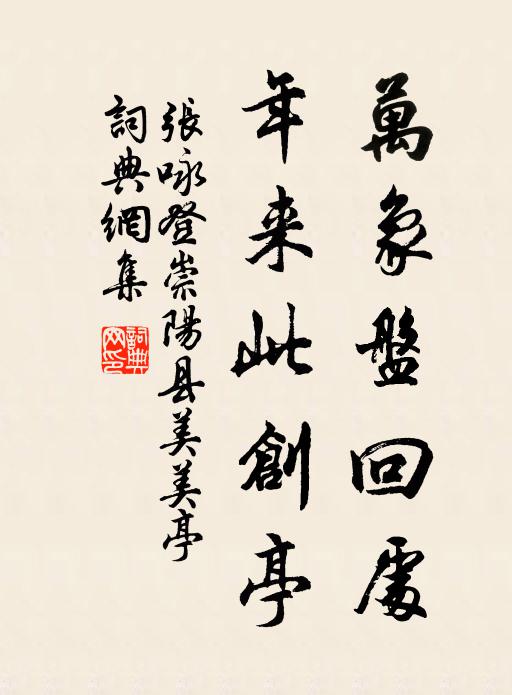 萬象盤回處
年来此創亭
張咏登崇陽县美美亭
詞典網集
詞典
网印